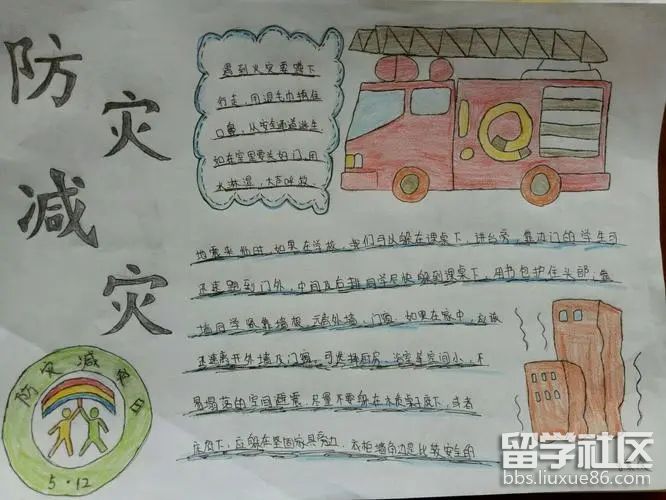 防
灾
减
灾
遇到火灾要蹲下
行走,用湿毛巾捂住
口鼻,从安全通道逃生
如在室里要关好门,用
水淋湿,大声呼救
地震来临时,如果在学校,我们可以躲在课桌下,讲台旁,靠近门的学生可
迅速跑到门外,中间及后排同学尽快躲到课桌下,用书包护住头部,靠
墙同学紧靠墙根,
外墙,门窗。如果在家中,应该
迅速离开外墙及门窗,可选择厨房、浴室等空间小,不
易塌落的空间避震,尽量不要躲在木质桌子底下,或者
床底下,应躲在坚固家具旁边,衣柜墙角边是比较安全的
防灾减灾日
5·12
留学社区
bbs.liuxue86.com